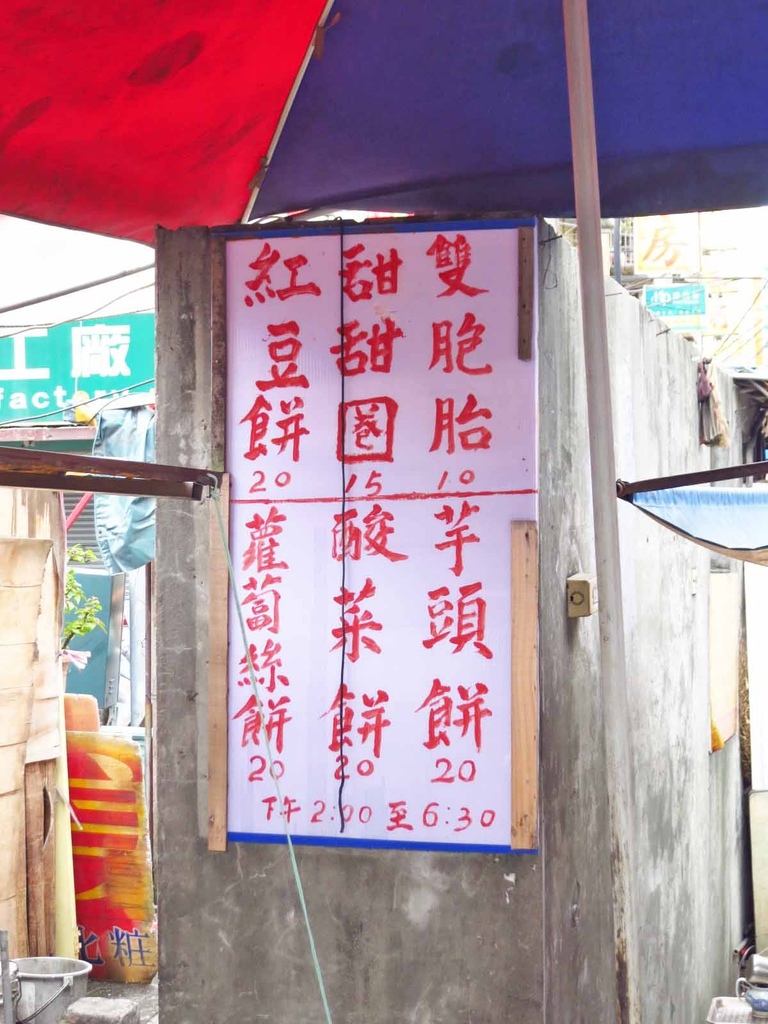 雙胞胎
10
甜甜圈
15
紅豆餅
20
芋頭餅
20
酸菜餅
20
蘿蔔絲餅
20
下午2:00至6:30
工廠
factory
房
化粧